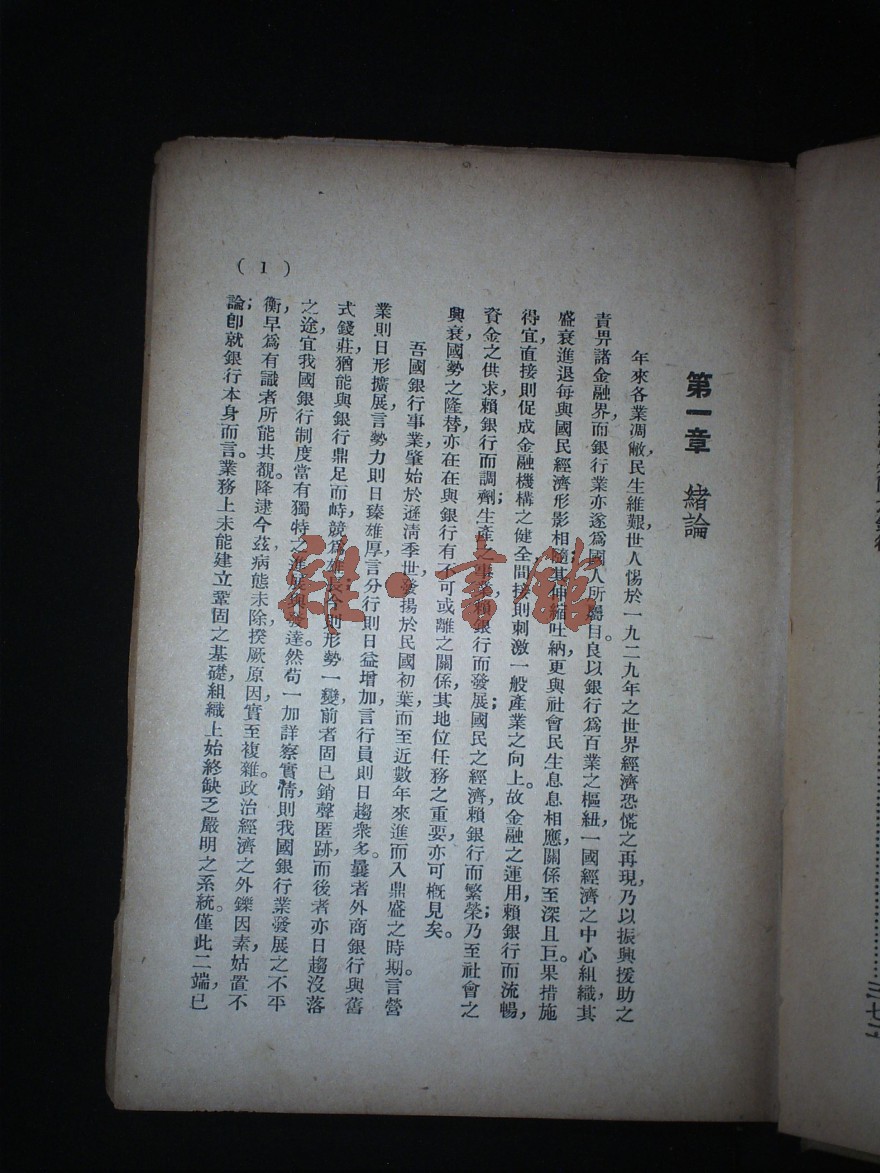 第一章 緒論
年來各業凋敝，民生維艱，世人惕於一九二九年之世界經濟恐慌之再現，乃以振興援助之
責畀諸金融界，而銀行業亦遂爲國人所屬目。良以銀行爲百業之樞紐，一國經濟之中心組織，其
盛衰進退，每與國民經濟形影相隨；其伸縮吐納，更與社會民生息息相應，關係至深且巨。果措施
得宜，直接則促成金融機構之健全，間接則刺激一般產業之向上。故金融之運用，賴銀行而流暢，
資金之供求，賴銀行而調劑；生產之事業，賴銀行而發展；國民之經濟，賴銀行而繁榮；乃至社會之
興衰，國勢之隆替，亦在在與銀行有不可或離之關係，其地位任務之重要，亦可概見矣。
吾國銀行事業，肇始於遜清季世，發揚於民國初葉，而至近數年來，進而入鼎盛之時期。言營
業則日形擴展，言勢力則日臻雄厚，言分行則日益增加，言行員則日趨衆多。曩者外商銀行與舊
式錢莊，猶能與銀行鼎足而峙，競爲雄長，今則形勢一變，前者固已銷聲匿跡，而後者亦日趨沒落
之途，宜我國銀行制度，當有獨特之進展與發達。然苟一加詳察實情，則我國銀行業發展之不平
衡，早爲有識者所能共覩。降逮今茲，病態未除，揆厥原因，實至複雜。政治經濟之外鑠因素，姑置不
論；卽就銀行本身而言。業務上未能建立鞏固之基礎，組織上始終缺乏嚴明之系統。僅此二端，已
( 1 )
雜·書館
三七二